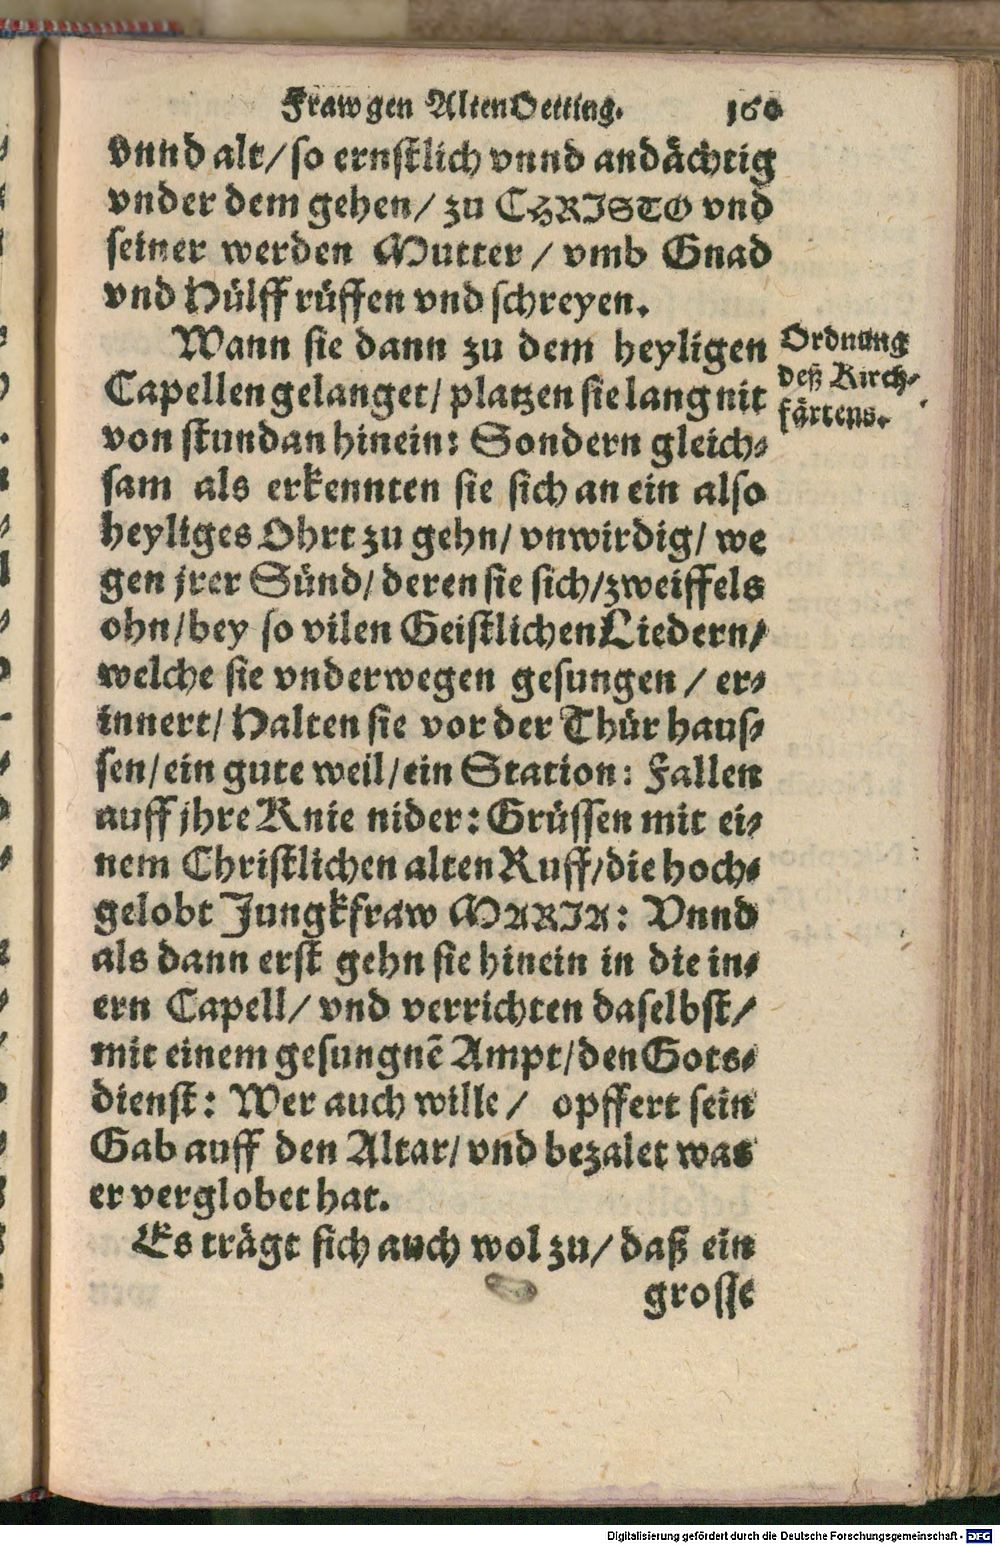 Fraw gen Alten Oetting. 160
vnnd alt/ so ernstlich vnnd andächtig
vnder dem gehen/ zu CHRISTO vnd
seiner werden Mutter / vmb Gnad
vnd Hülff rüffen vnd schreyen.
Wann sie dann zu dem heyligen
Capellen gelanget/ platzen sie lang nit
von stundan hinein: Sondern gleich⸗
sam als erkennten sie sich an ein also
heyliges Ohrt zu gehn/ vnwirdig/ we
gen jrer Sünd/ deren sie sich/ zweiffels
ohn/ bey so vilen Geistlichen Liedern/
welche sie vnderwegen gesungen / er⸗
innert/ Halten sie vor der Thür haus⸗
sen/ ein gute weil/ ein Station: Fallen
auff jhre Knie nider: Grüssen mit ei⸗
nem Christlichen alten Ruff/ die hoch⸗
gelobt Jungkfraw MARIA: Vnnd
als dann erst gehn sie hinein in die in⸗
ern Capell/ vnd verrichten daselbst/
mit einem gesungnẽ Ampt/ den Gots⸗
dienst: Wer auch wille / opffert sein
Gab auff den Altar/ vnd bezalet was
er verglobet hat.
Es trägt sich auch wol zu/ daß ein
grosse
Ordnung
deß Kirch⸗
färtens.
Digitalisierung gefördert durch die Deutsche Forschungsgemeinschaft - DFG